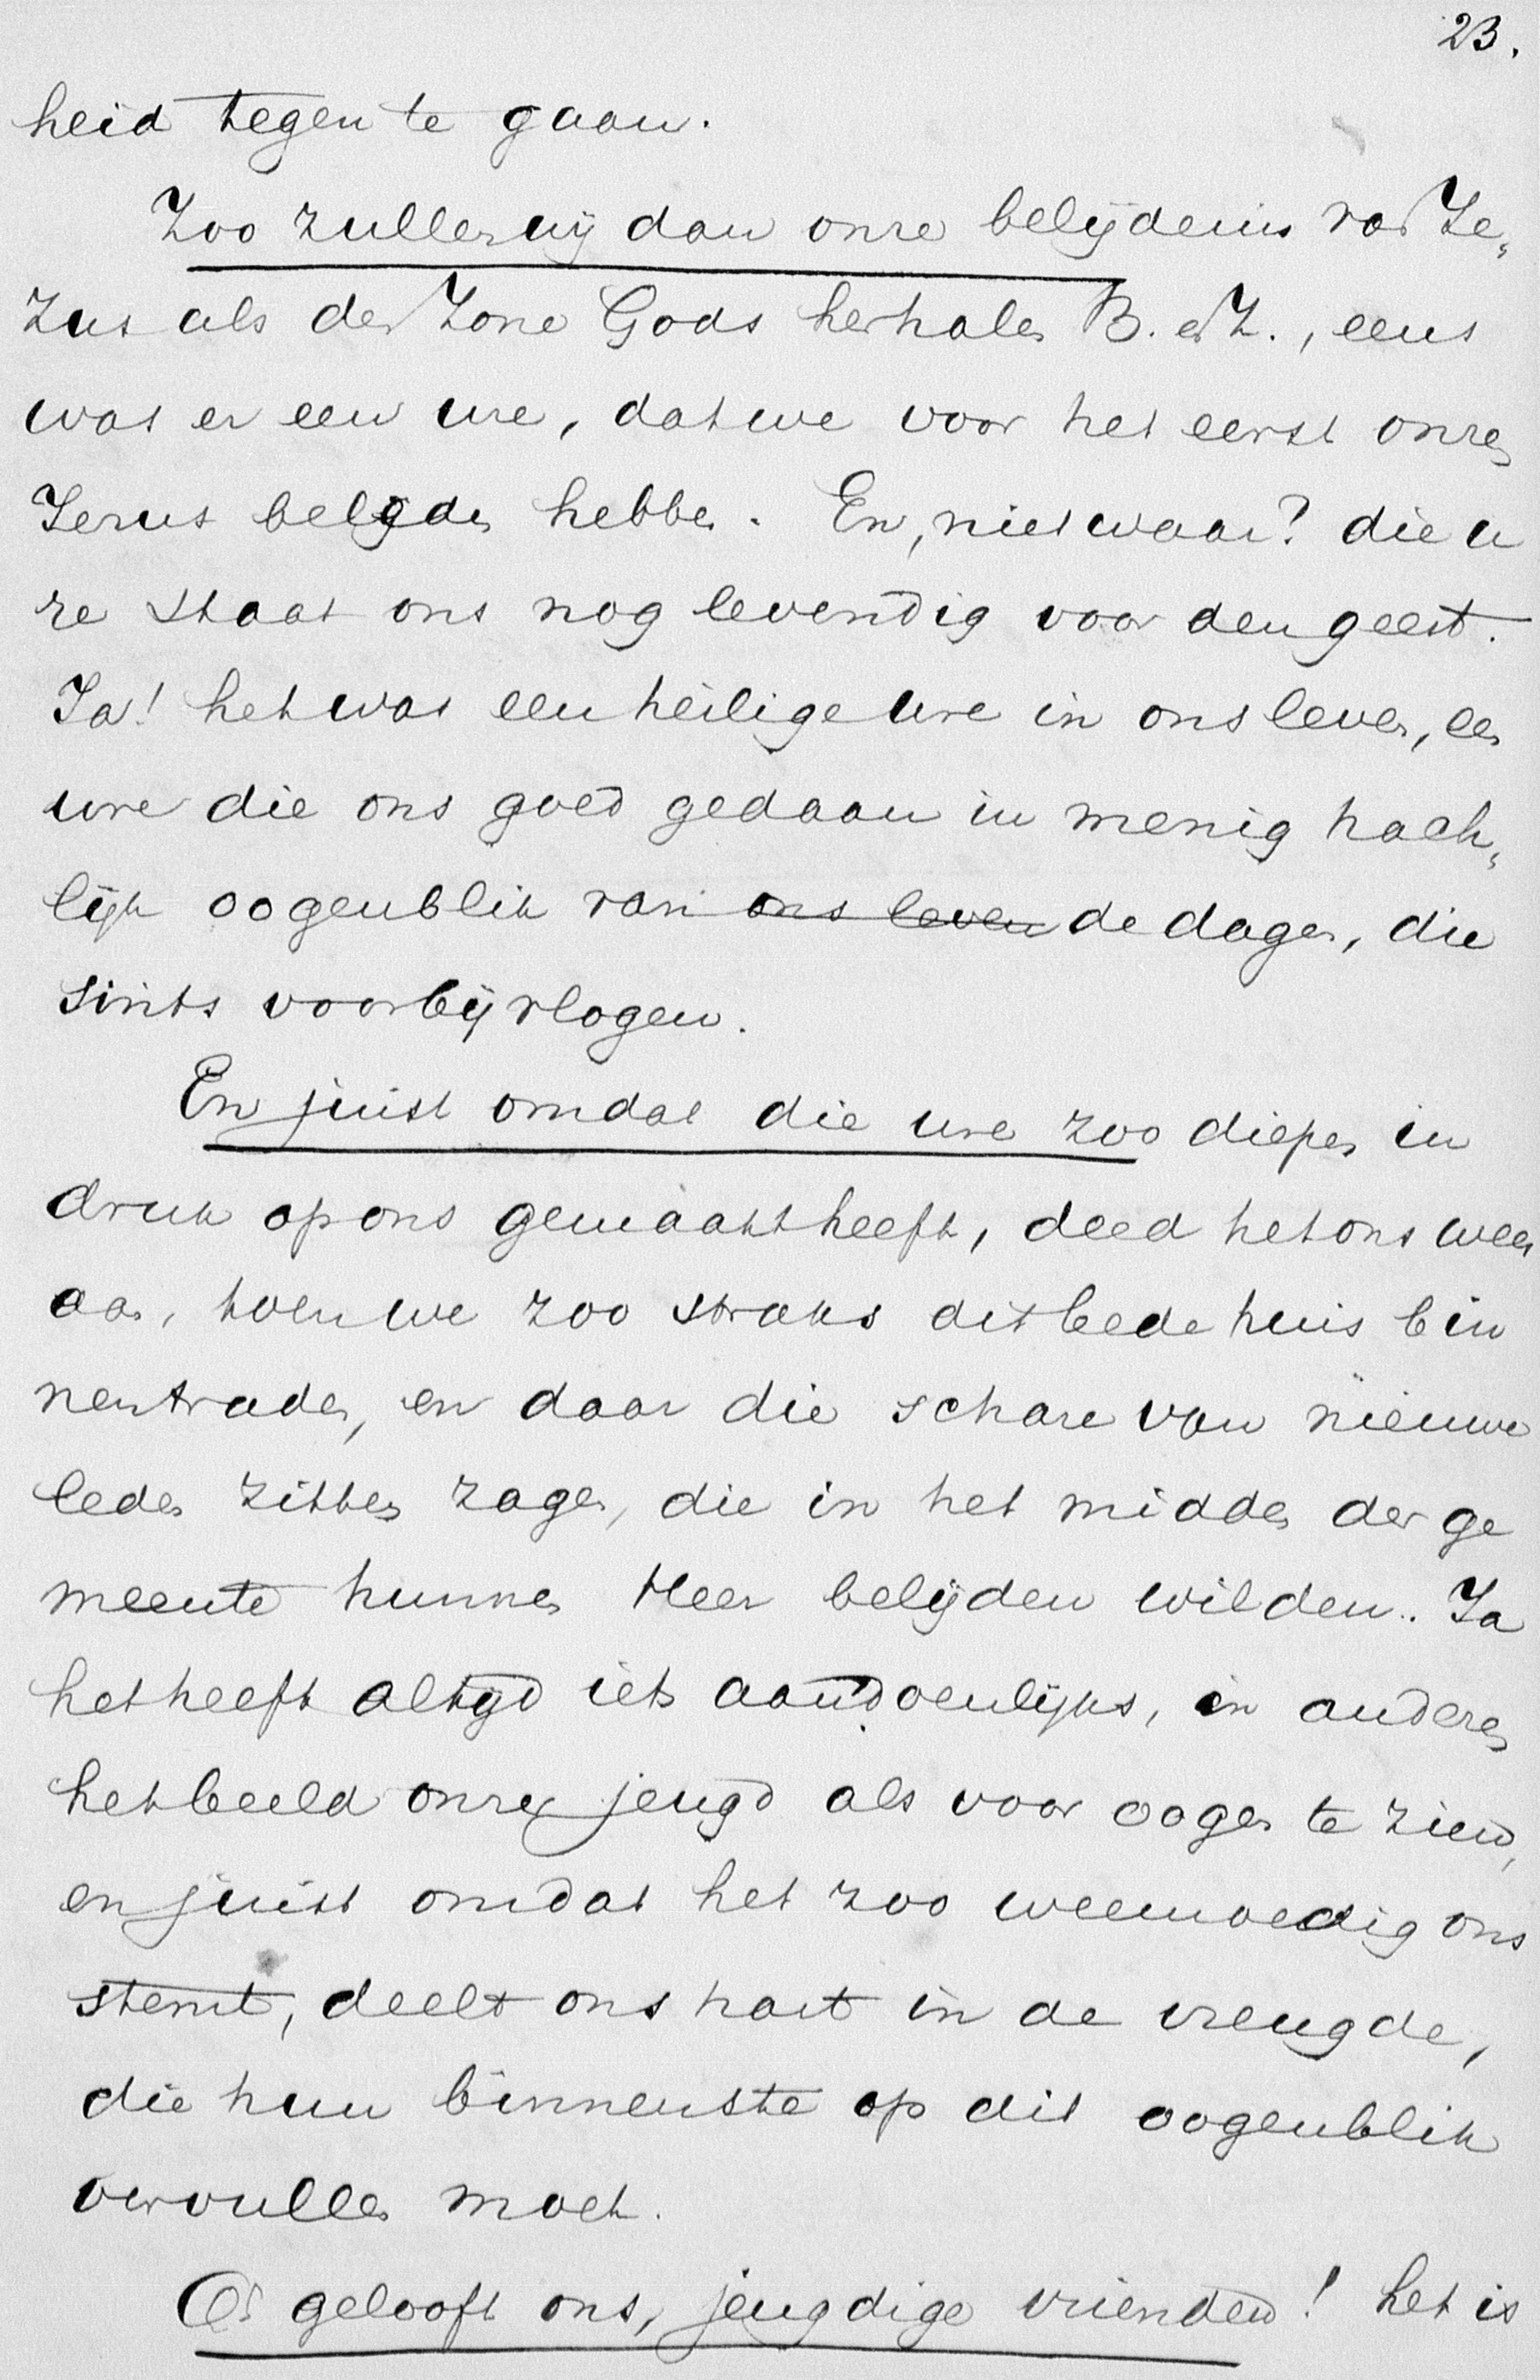 23.
heid tegen te gaan.
Zoo zullen wij dan onze belijdenis van Je„
zus als den Zone Gods herhalen B. en Z., eens
was er een ure, dat we voor het eerst onzen
Jezus beleden hebben. En, niet waar? die u
re staat ons nog levendig voor den geest.
Ja! het was een heilige ure in ons leven, een
ure die ons goed gedaan in menig hach„
lijk oogenblik van ons leven de dagen, die
sints voorbij vlogen.
En juist omdat die ure zoo diepen in
druk op ons gemaakt heeft, deed het ons wee
aan, toen we zoo straks dit bedehuis bin
nentraden, en daar die schare van nieuwe
leden zitten zagen, die in het midden der ge
meente hunnen Heer belijden wilden. Ja
het heeft altijd iets aandoenlijks, in anderen
het beeld onzer jeugd als voor oogen te zien,
en juist omdat het zoo weemoedig ons
stemt, deelt ons hart in de vreugde,
die hun binnenste op dit oogenblik
vervullen moet.
O! gelooft ons, jeugdige vrienden! het is